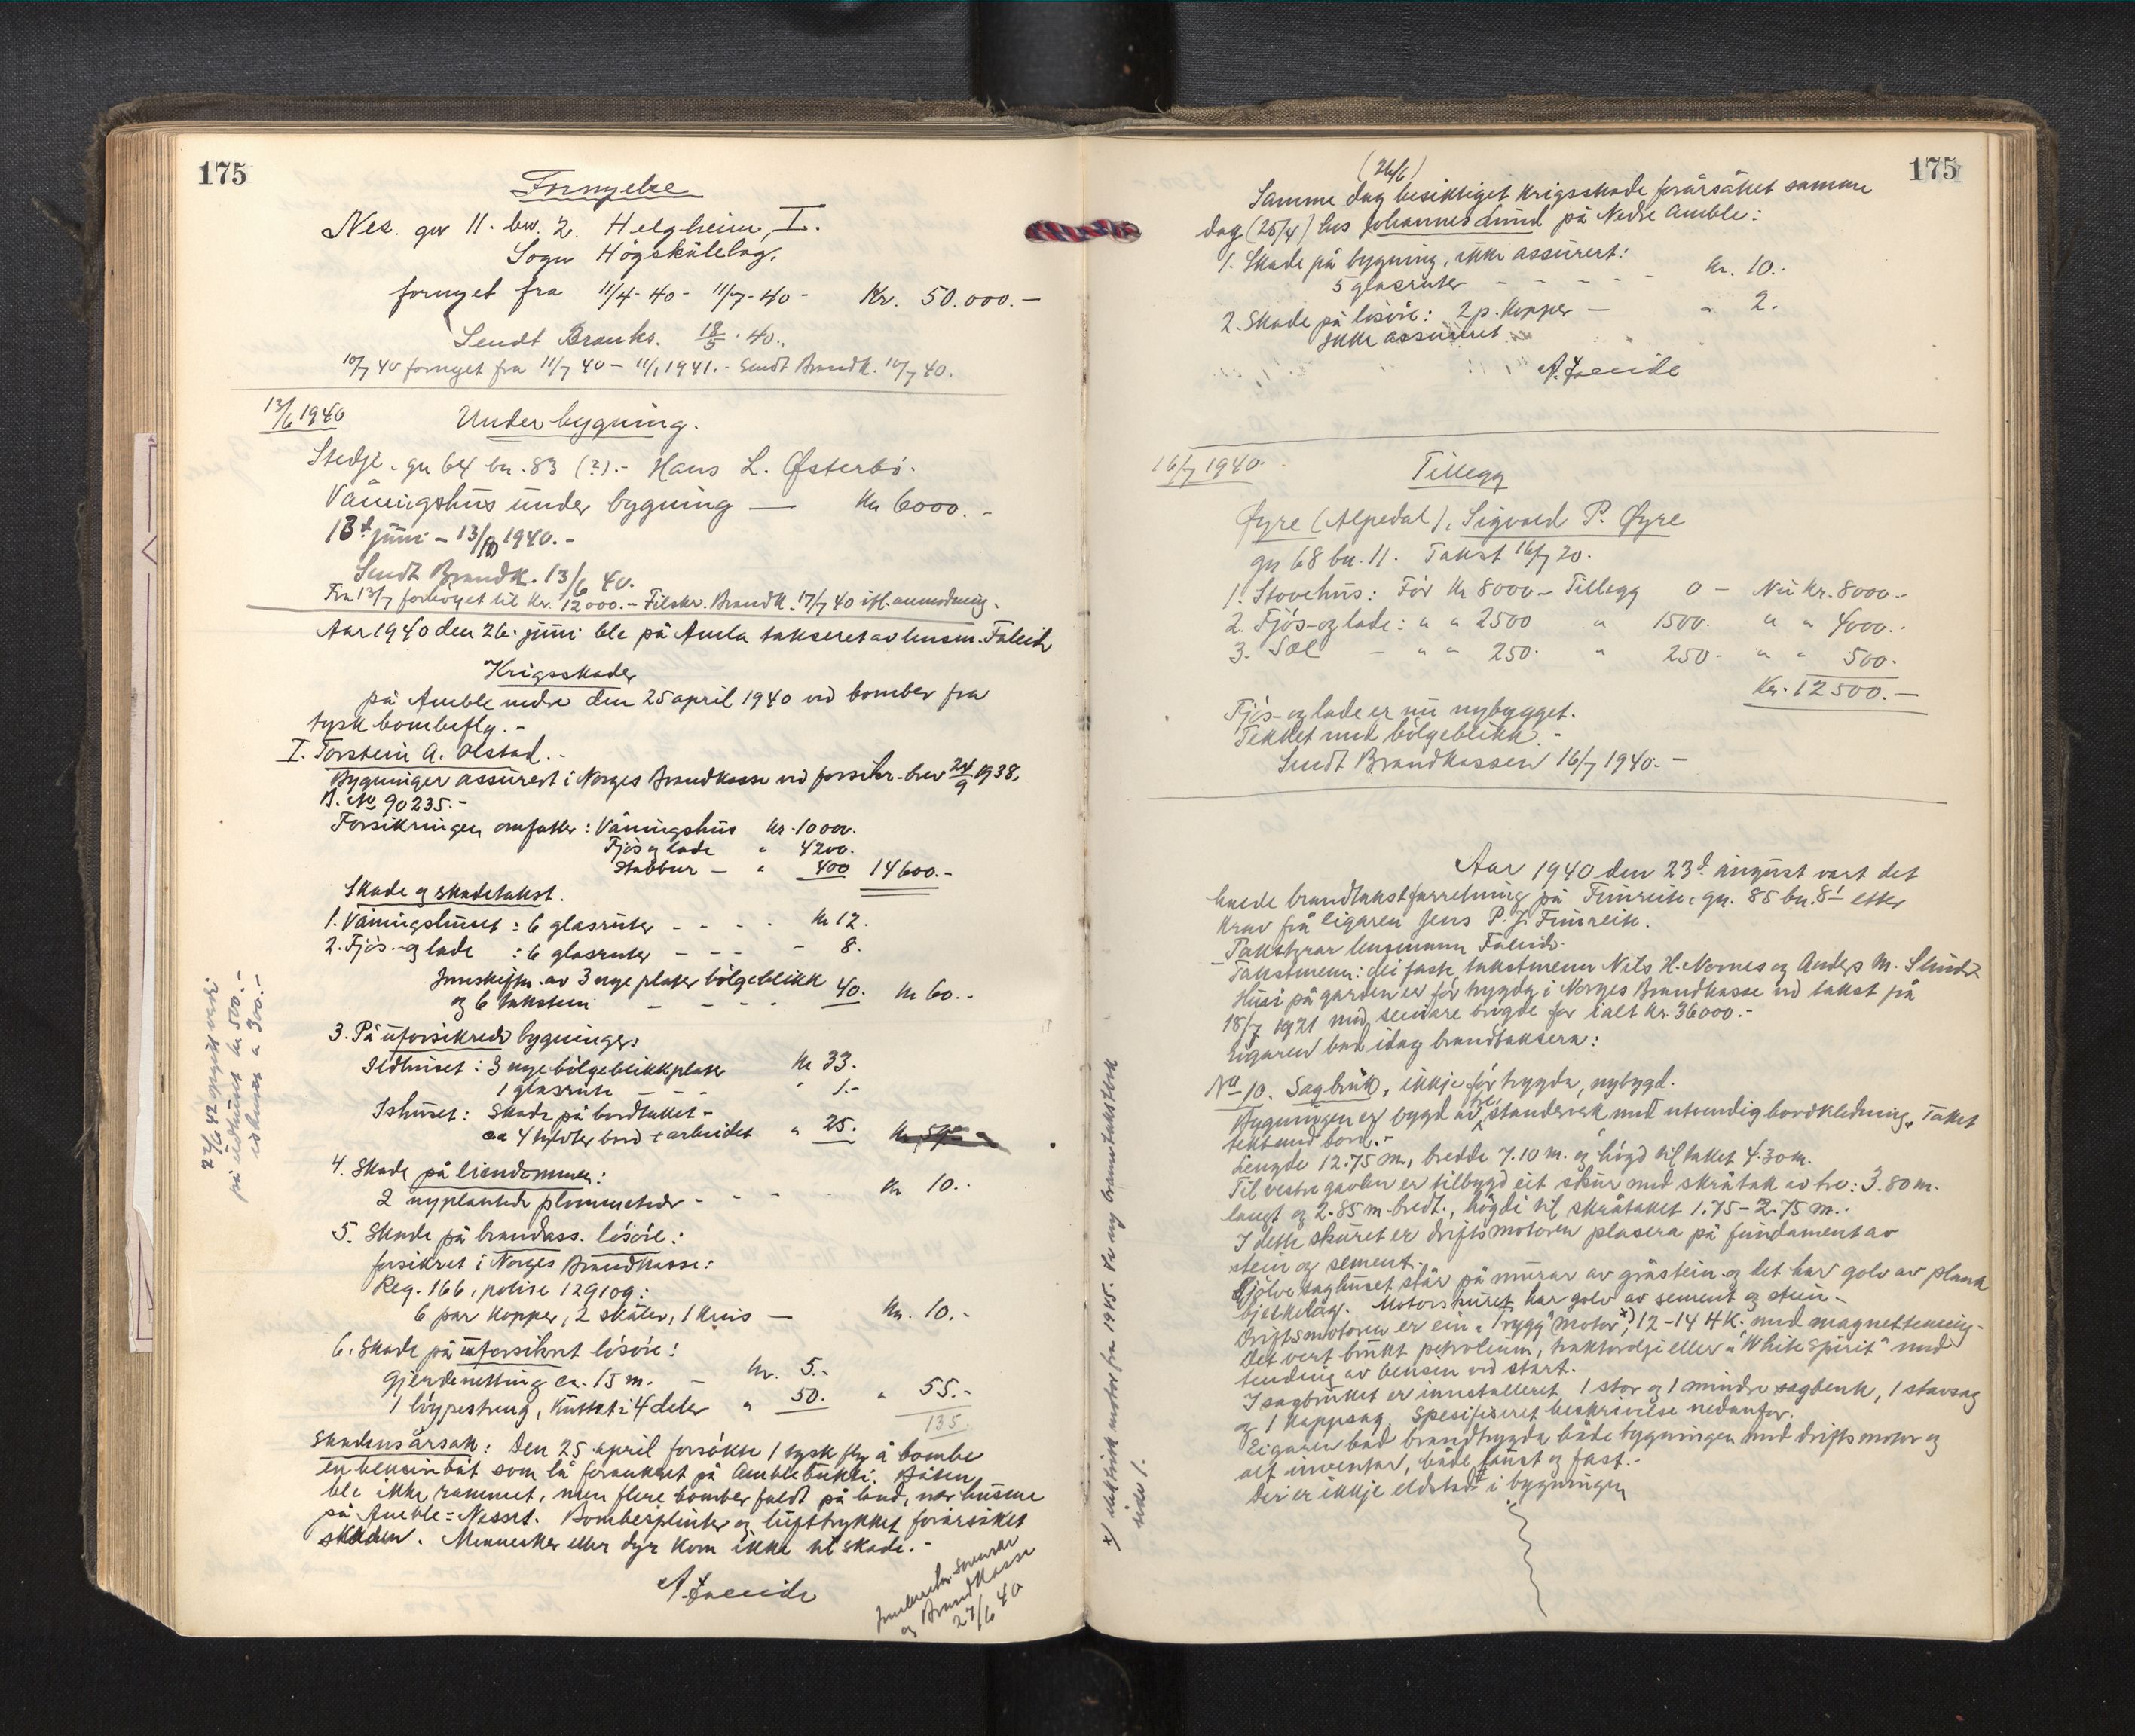 175
Fornyelse
Nes. gnr 11. bnr. 2. Helgheim, I.
Sogn Högskulelag.
fornyet fra 11/4-40 - 11/7-40 - Kr. 50.000.-
Sendt Brandks. 18/5. 40.
10/7 40 fornyet fra 11/7 40 - 11/1 1941. - Sendt Brandk. 10/7 40.
13/6 1940
Under bygning.
Stedje. gn 64 bn. 83 (?).- Hans L. Østerbö.
Våningshus under bygning — Kr 6000.-
13d juni - 13/10 1940.-
Sendt Brandk. 13/6 40.
Fra 13/7 forhöyet til kr. 12000.- Tilskr. Brandk. 17/7 40 ifl. anmodning.
Aar 1940 den 26. juni ble på Amla taksert av lensm. Faleide
Krigsskader
på Amble nedre den 25 april 1940 ved bomber fra
tysk bombefly.-
I. Torstein A. Olstad.-
Bygninger assurert i Norges Brandkasse ved forsikr.-brev 24/9 1938,
B. No 90235.-
Forsikringen omfatter: Våningshus kr. 10000.
Fjös og lade " 4200.
Stabbur - " 400 14600.-
Skade og skadetakst.
1. Våningshuset: 6 glasruter - - - Kr 12.
2. Fjös- og lade : 6 glasruter - - - - 8.
Innskiftn. av 3 nye plater bölgeblikk
og 6 takstein - - - - 40. Kr 60.-
3. På uforsikrede bygninger:
Ildhuset: 3 nye bölgeblikkplater Kr 33.
1 glasrute - - " 1.-
Ishuset: Skade på bordtaket -
ca 4 tylvter bord + arbeidet " 25.
4. Skade på eiendommen:
2 nyplantede plommetrær - - - - Kr 10.-
5. Skade på brandass. lösöre:
forsikret i Norges Brandkasse:
Reg. 166, polise 129109:
6 par kopper, 2 skåler, 1 krus — Kr. 10.-
6. Skade på uforsikret lösöre:
Gjerdenetting ca. 15 m. - Kr. 5.-
1 löypestreng, kuttet i 4 deler " 50. " 55.-
135.
Skadens årsak: Den 25. april forsökte 1 tysk fly å bombe
en bensinbåt som lå forankret på Amblebukti. Båten
ble ikke rammet, men flere bomber faldt på land, nær husene
på Amble=Nesset. Bombesplinter og lufttrykket forårsaket
skaden. Mennesker eller dyr kom ikke til skade.-
A. Faleide
og Brandkasse
27/6 40
på ildhuset kr 500.-
ishuset " 300.-
175
(26/6)
Samme dag besiktiget krigsskade forårsaket samme
dag (25/4) hos Johannes Lund på Nedre Amble:
1. Skade på bygning, ikke assurert:
5 glasruter - - - - Kr. 10.-
2. Skade på lösöre: 2 p. kopper — " 2.
ikke assurert.
A. Faleide
16/7 1940.
Tillegg
Øyre (Alpedal), Sigvald P. Øyre
gn 68 bn. 11. Takst 16/7 20.
1. Stovehus: För Kr 8000 - Tillegg 0 - Nu Kr. 8000.-
2. Fjös- og lade: " " 2500 " 1500. " " 4000.-
3. Sæl - " " 250. " 250. " " 500.
Kr. 12500.-
Fjös- og lade er nu nybygget.
Tekket med bölgeblikk.-
Sendt Brandkassen 16/7 1940.-
Aar 1940 den 23d august vart det
halde brandtakstforretning på Fimreite, gn. 85 bn. 81 etter
krav frå eigaren Jens P. J. Fimreite.
Takstyrar lensmann Faleide.
Takstmenn: dei faste takstmenn Nils H. Nornes og Anders M. Slinde
Husi på garden er för trygda i Norges Brandkasse ved takst på
18/7 1921 med seinare brigde for ialt kr. 36000.-
Eigaren bad idag brandtaksera:
No 10. Sagbruk, ikkje för trygda, nybygd.
Bygningen er bygd av tre, standerverk med utvendig bordkledning. Taket
tekt med bord.-
Lengde 12.75 m., bredde 7.10 m. og högd til taket 4.30 m.
Til vestre gavlen er tilbygd eit skur med skråtak av tre: 3.80 m.
langt og 2.85 m. bredt., högde til skråtaket 1.75 - 2.75 m.-
I dette skuret er driftsmotoren plasera på fundament av
stein og sement.-
Sjölve saghuset står på murar av gråstein og det har golv av plank
bjelkelag. Motorskuret har golv av sement og stein.-
Driftsmotoren er ein "Trygg" motor x), 12-14 HK. med magnettening.
Det vert brukt petroleum, traktorolje eller "White Spirit" med
tending av bensin ved start.
I sagbruket er innstalleret 1 stor og 1 mindre sagbenk, 1 stavsag
og 1 kappsag. Spesifiseret beskrivelse nedanfor.
Eigaren bad brandtrygda både bygningen med driftsmotor og
alt inventar, både laust og fast.-
Der er ikkje eldstad i bygningen
x) elektrisk motor fra 1945. Se ny branntakstbok
side 1.